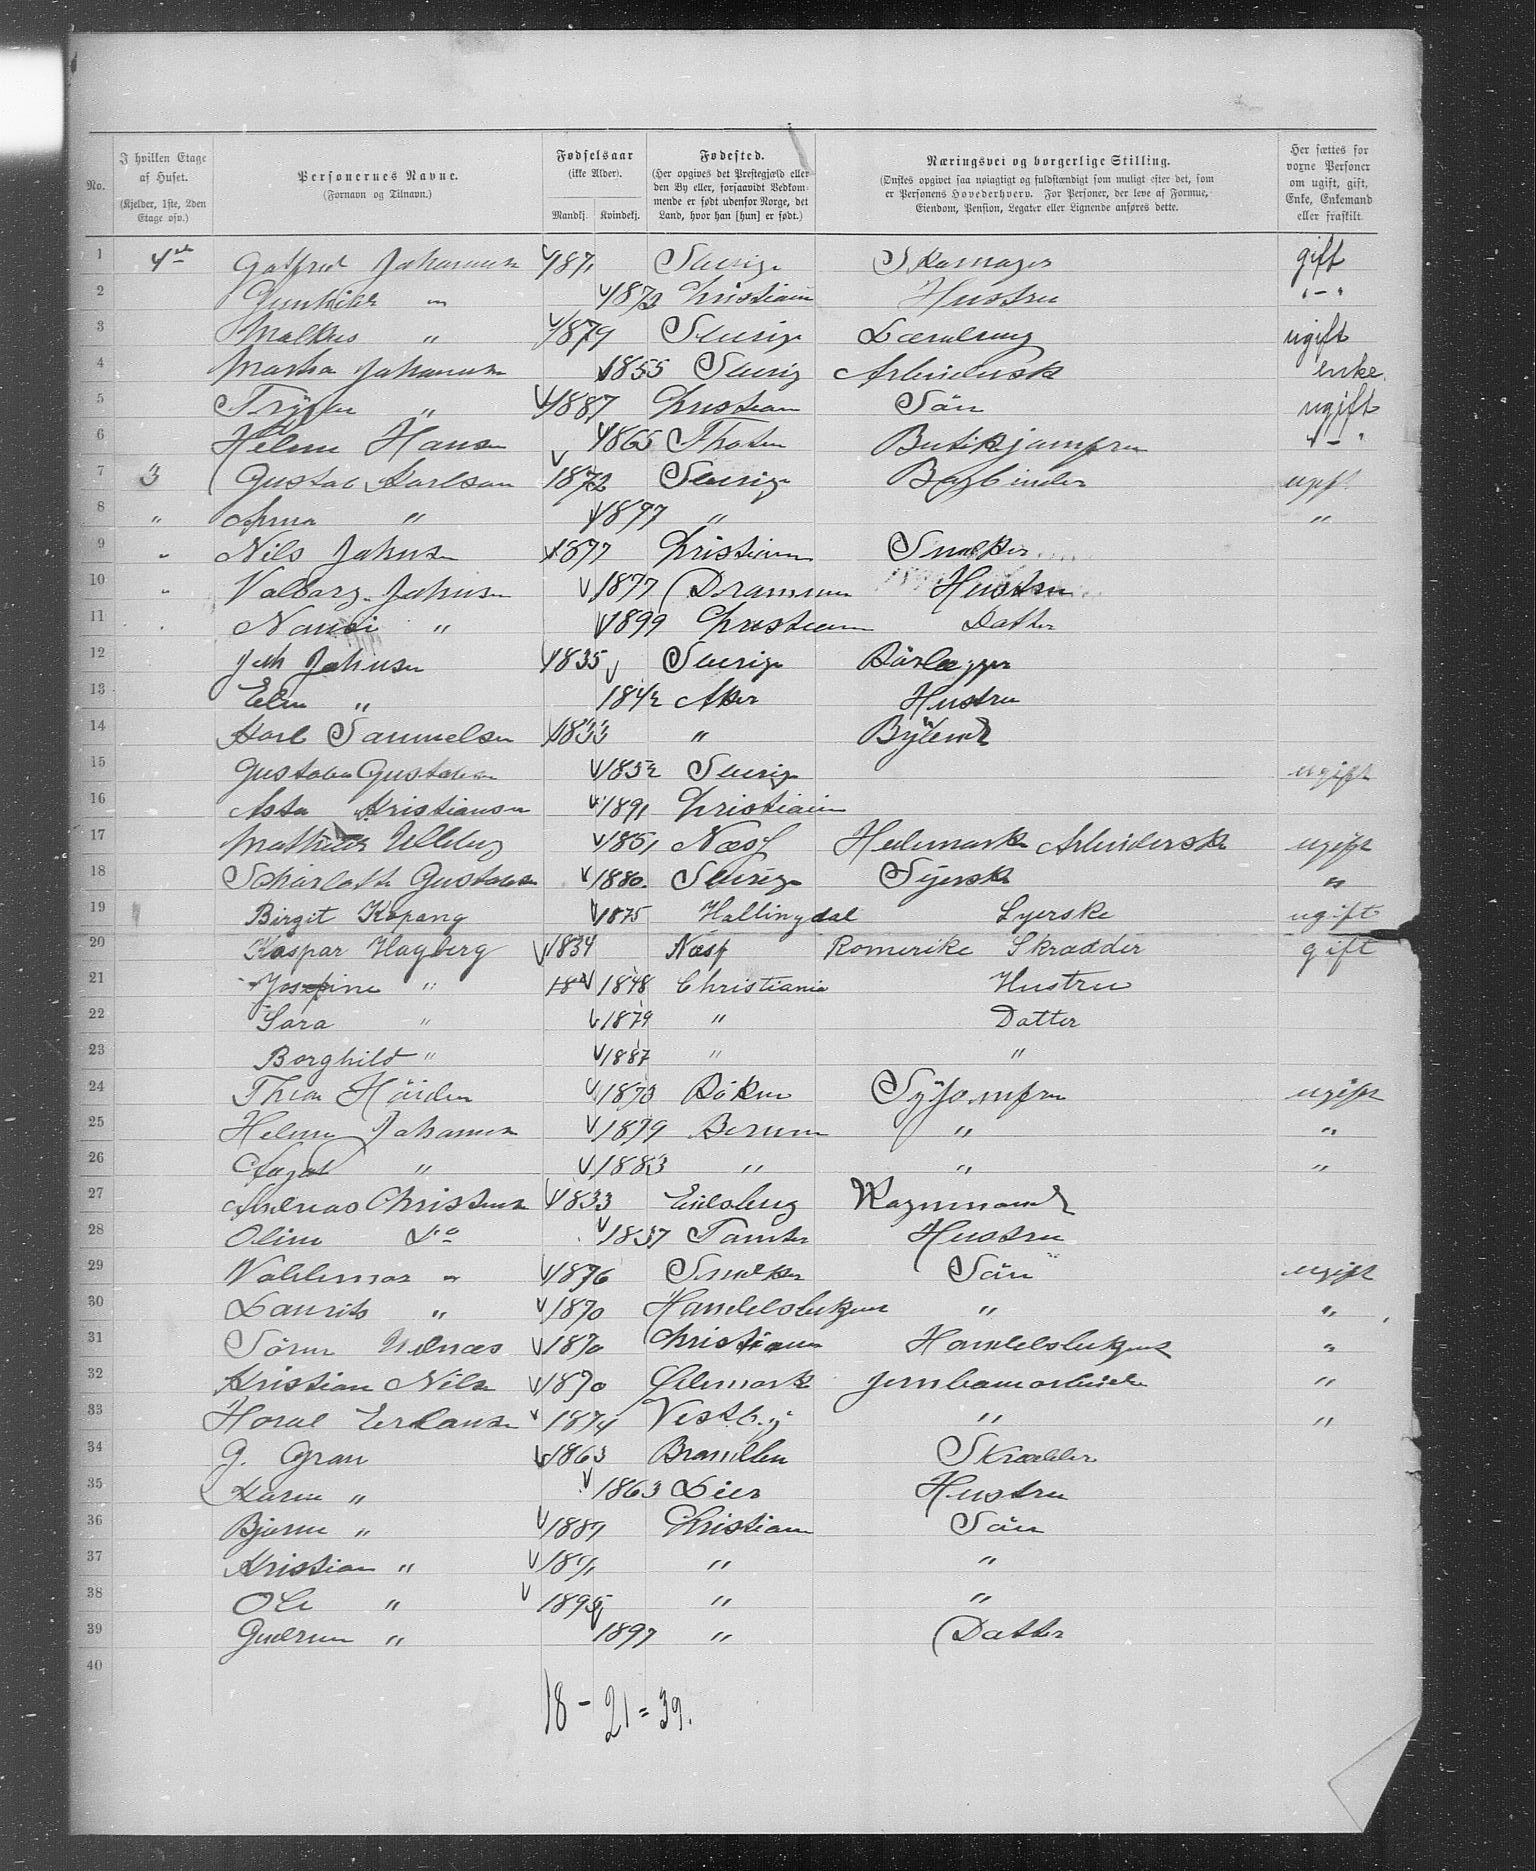 No.
I hvilken Etage af Huset. (Kjelder, 1ste, 2den Etage osv.)
Personernes Navne. (Fornavn og Tilnavn.)
Fødselsaar (ikke Alder). Mandkj. Kvindekj.
Fødested. (Her opgives det Prestegjæld eller den By eller, forsaavidt Vedkommende er født udenfor Norge, det Land, hvor han [hun] er født.)
Næringsvei og borgerlige Stilling. (Ønskes opgivet saa nøiagtigt og fuldstændigt som muligt efter det, som er Personens Hovederhverv. For Personer, der leve af Formue, Eiendom, Pension, Legater eller Lignende anføres dette.)
Her sættes for voxne Personer om ugift, gift, Enke, Enkemand eller fraskilt.
1 4de Gotfred Johannsen 1871 Sverige Skomager gift
2 " 1872 Christiania Hustru "-"
3 " 1879 Sverige ugift
4 Martha Johannsen 1855 Sverig Arbeiderske enke
5 " 1887 Christiania Sön ugift
6 Helene Hansen 1865 Thoten Butikjomfru "-"
7 3 Gustav Karlson 1872 Sverige Bogbinder ugift
8 " Anna " 1897 " "
9 " Nils Johnsen 1877 Christiania Snedker
10 " Valborg Johnsen 1877 Drammen Hustru
11 " " 1899 Christiania Datter
12 Johnsen 1835 Sverige
13 " 1842 Aker Hustru
14 Karl Samuelsen 1833 "
15 Gustava Gustavsen 1852 Sverige ugift
16 Asta Kristiansen 1891 Christiania
17 Mathilde 1851 Næss Hedemarken Arbeiderske ugift
18 Scharlotte Gustavsen 1880 Sverige Syerske "
19 Birgit Kopang 1875 Hallingdal Syerske ugift
20 Kaspar Hagberg 1834 Næss Romerike Skradder gift
21 Josefine " 18 1848 Christiania Hustru
22 Sara " 1879 " Datter
23 Borghild " 1887 " "
24 Thea Höiden 1873 Röken Syjomfru ugift
25 Helene Johannsen 1879 Berum " "
26 " 1883 " " "
27 Andreas Christensen 1833 Eidsberg Vognmand
28 Oline Do 1837 Hustru
29 Valdemar " 1876 Snedker Sön ugift
30 Laurits " 1870 Handelsbetjent " "
31 Sören 1870 Christiania Handelsbetjent "
32 Kristian Nilsen 1870 Ödemark Jernbanearbeider "
33 Harald Erlansen 1874 Vestby " "
34 G. Gran 1863 Skrædder
35 Karen " 1863 Lier Hustru
36 Bjarne " 1889 Christiania Sön
37 Kristian " 1891 " "
38 Ole " 1895 " "
39 Gudrun " 1897 " Datter
40
18 - 21 = 39.